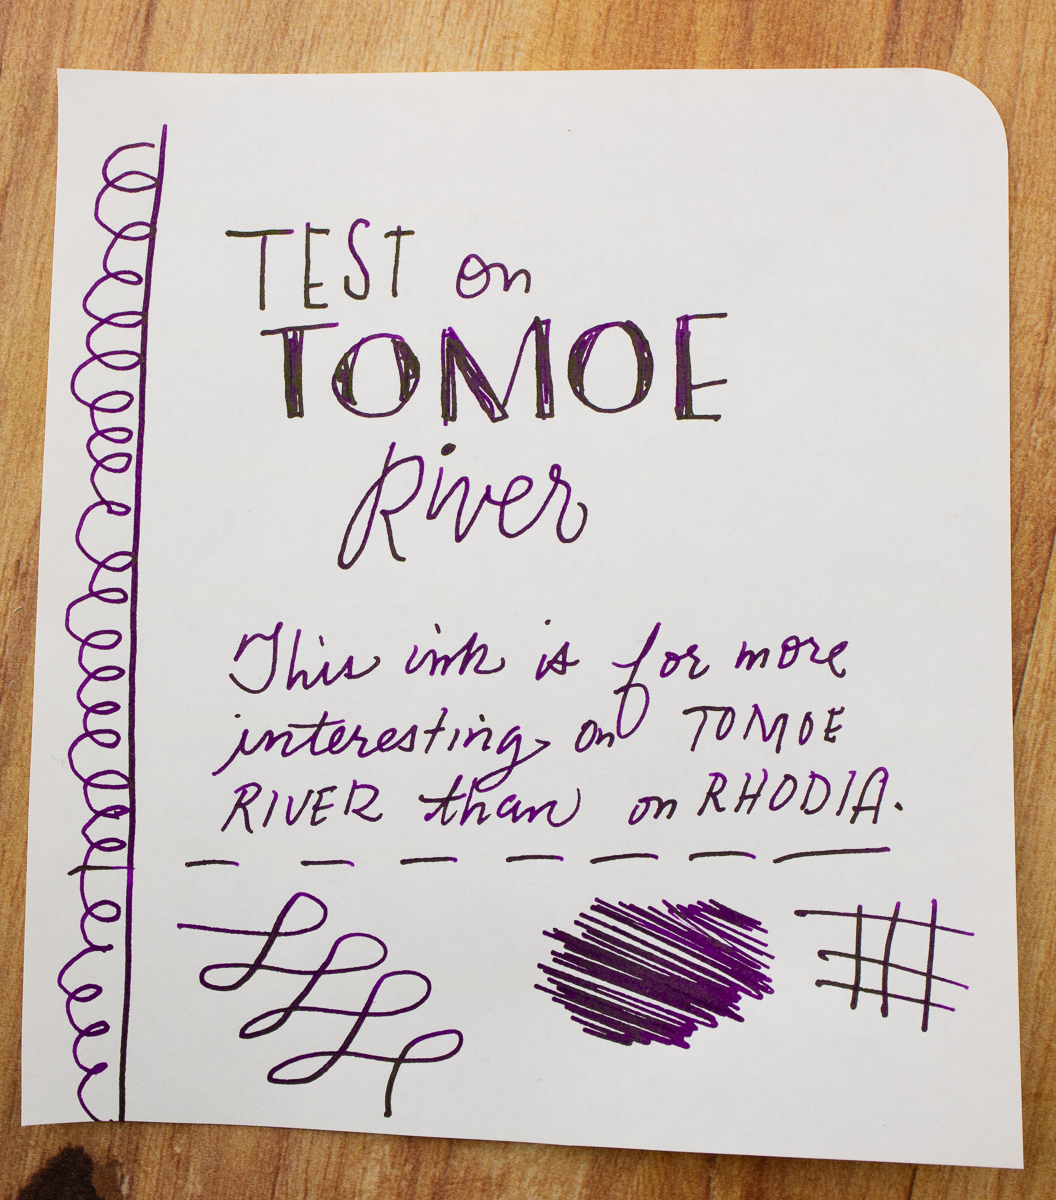 TEST on
TOMOE
River
This ink is for more
interesting on TOMOE
RIVER than on RHODIA.